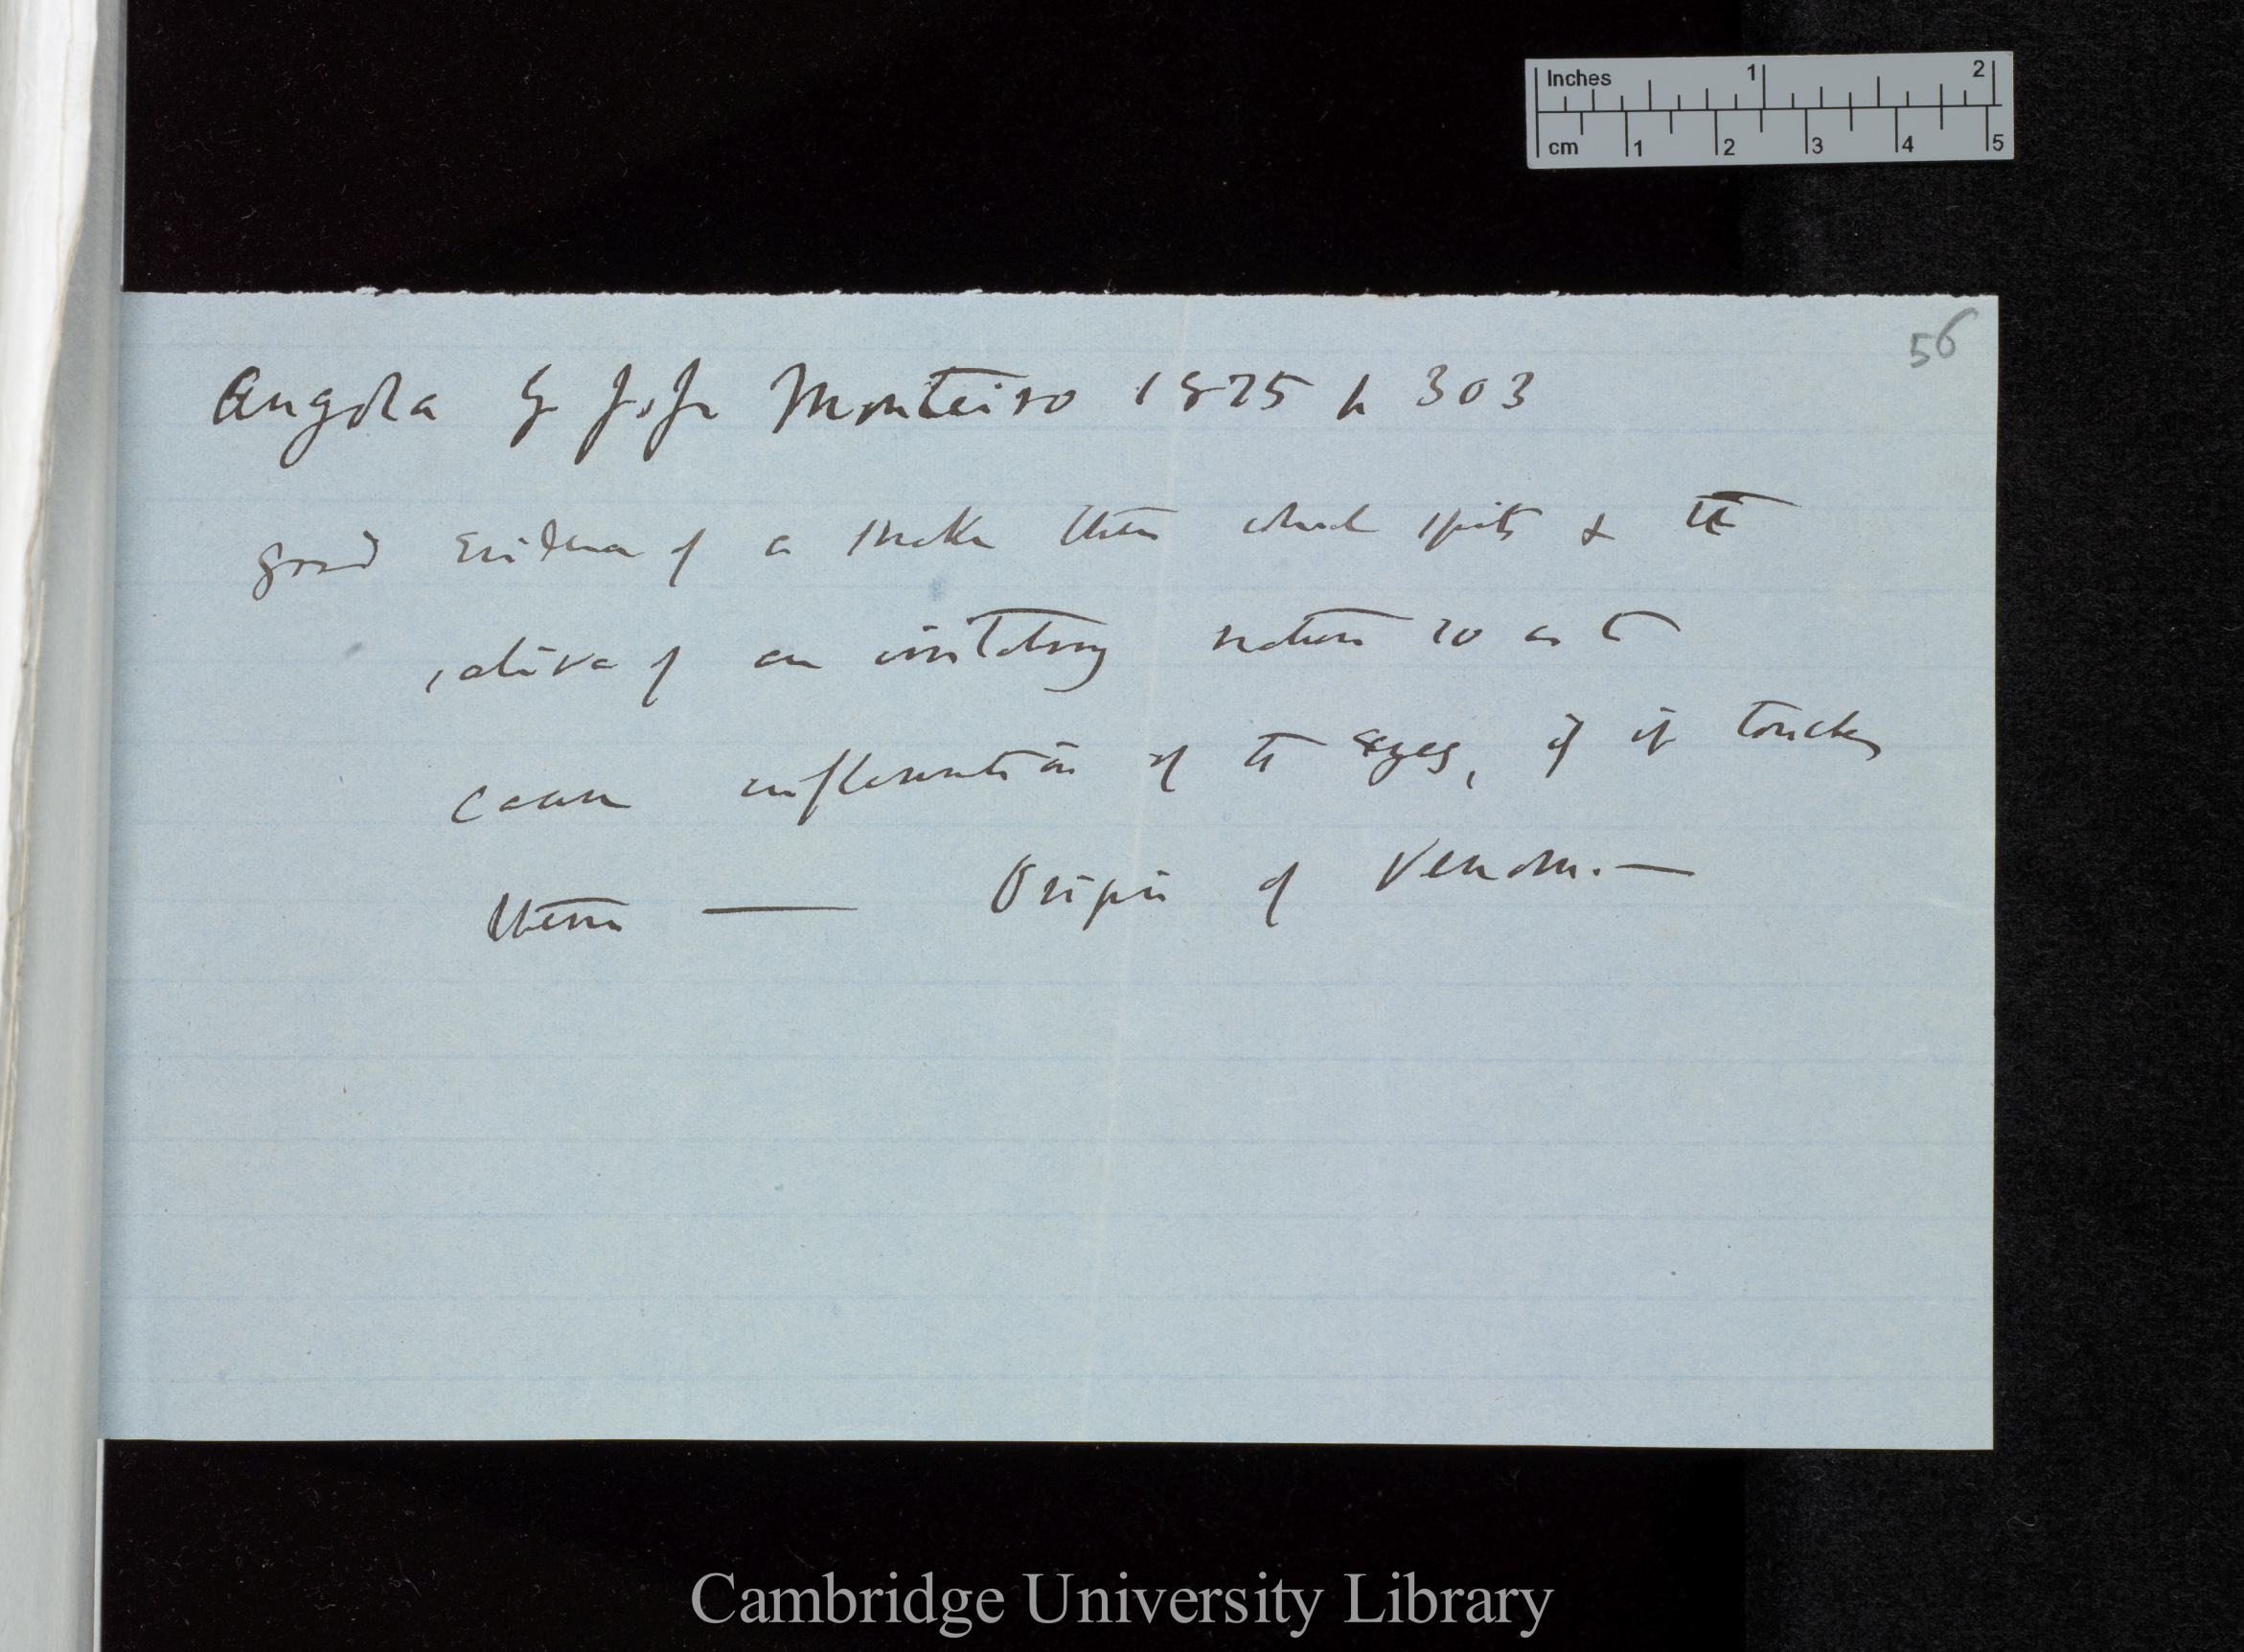 Inches 1 2
cm 1 2 3 4 5
56
Angola by J. J. Monteiro 1875 p 303
good evidence of a snake there which spits & the
saliva of an irritating nature so as to
cause inflammation of the eyes, if it touches
them — Origin of Venom. —
Cambridge University Library